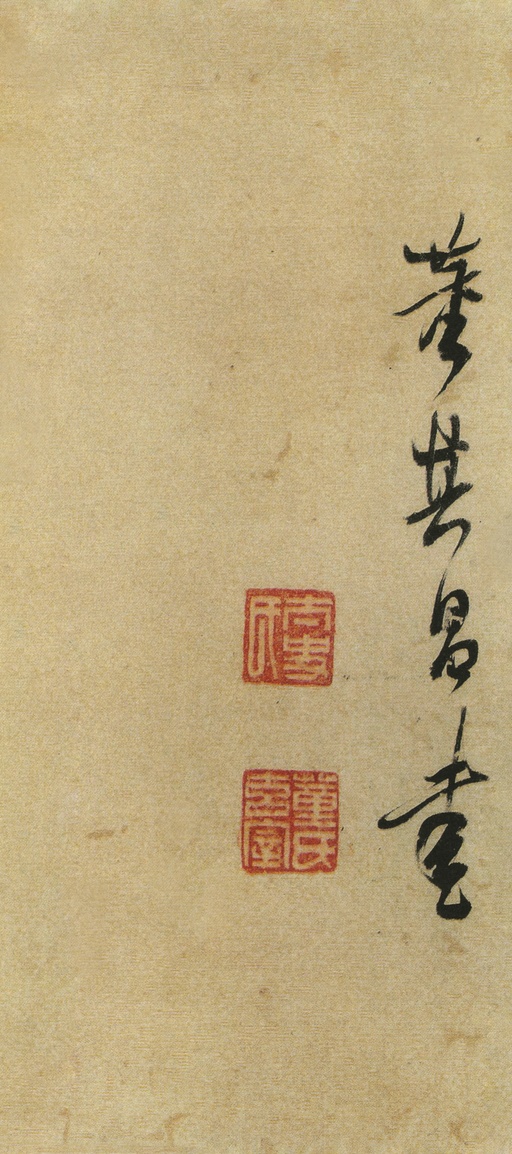 董其昌書
董氏玄宰